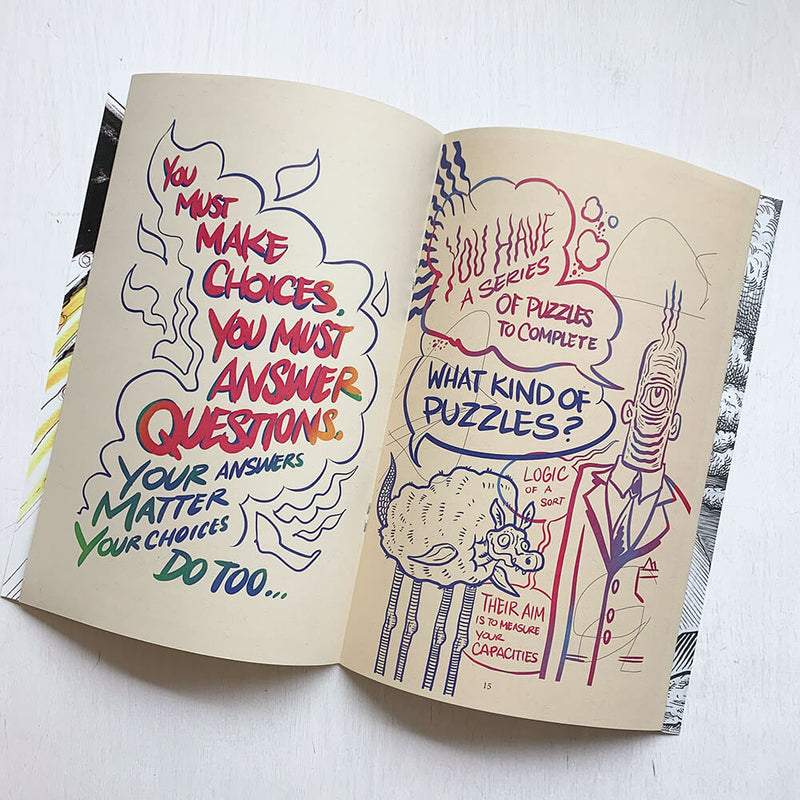 YOU
MUST
MAKE
CHOICES.
YOU MUST
ANSWER
QUESTIONS.
YOUR ANSWERS
MATTER
YOUR CHOICES
DO TOO...
YOU HAVE
A SERIES
OF PUZZLES
TO COMPLETE
WHAT KIND OF
PUZZLES?
LOGIC
OF A
SORT
THEIR AIM
IS TO MEASURE
YOUR
CAPACITIES
15